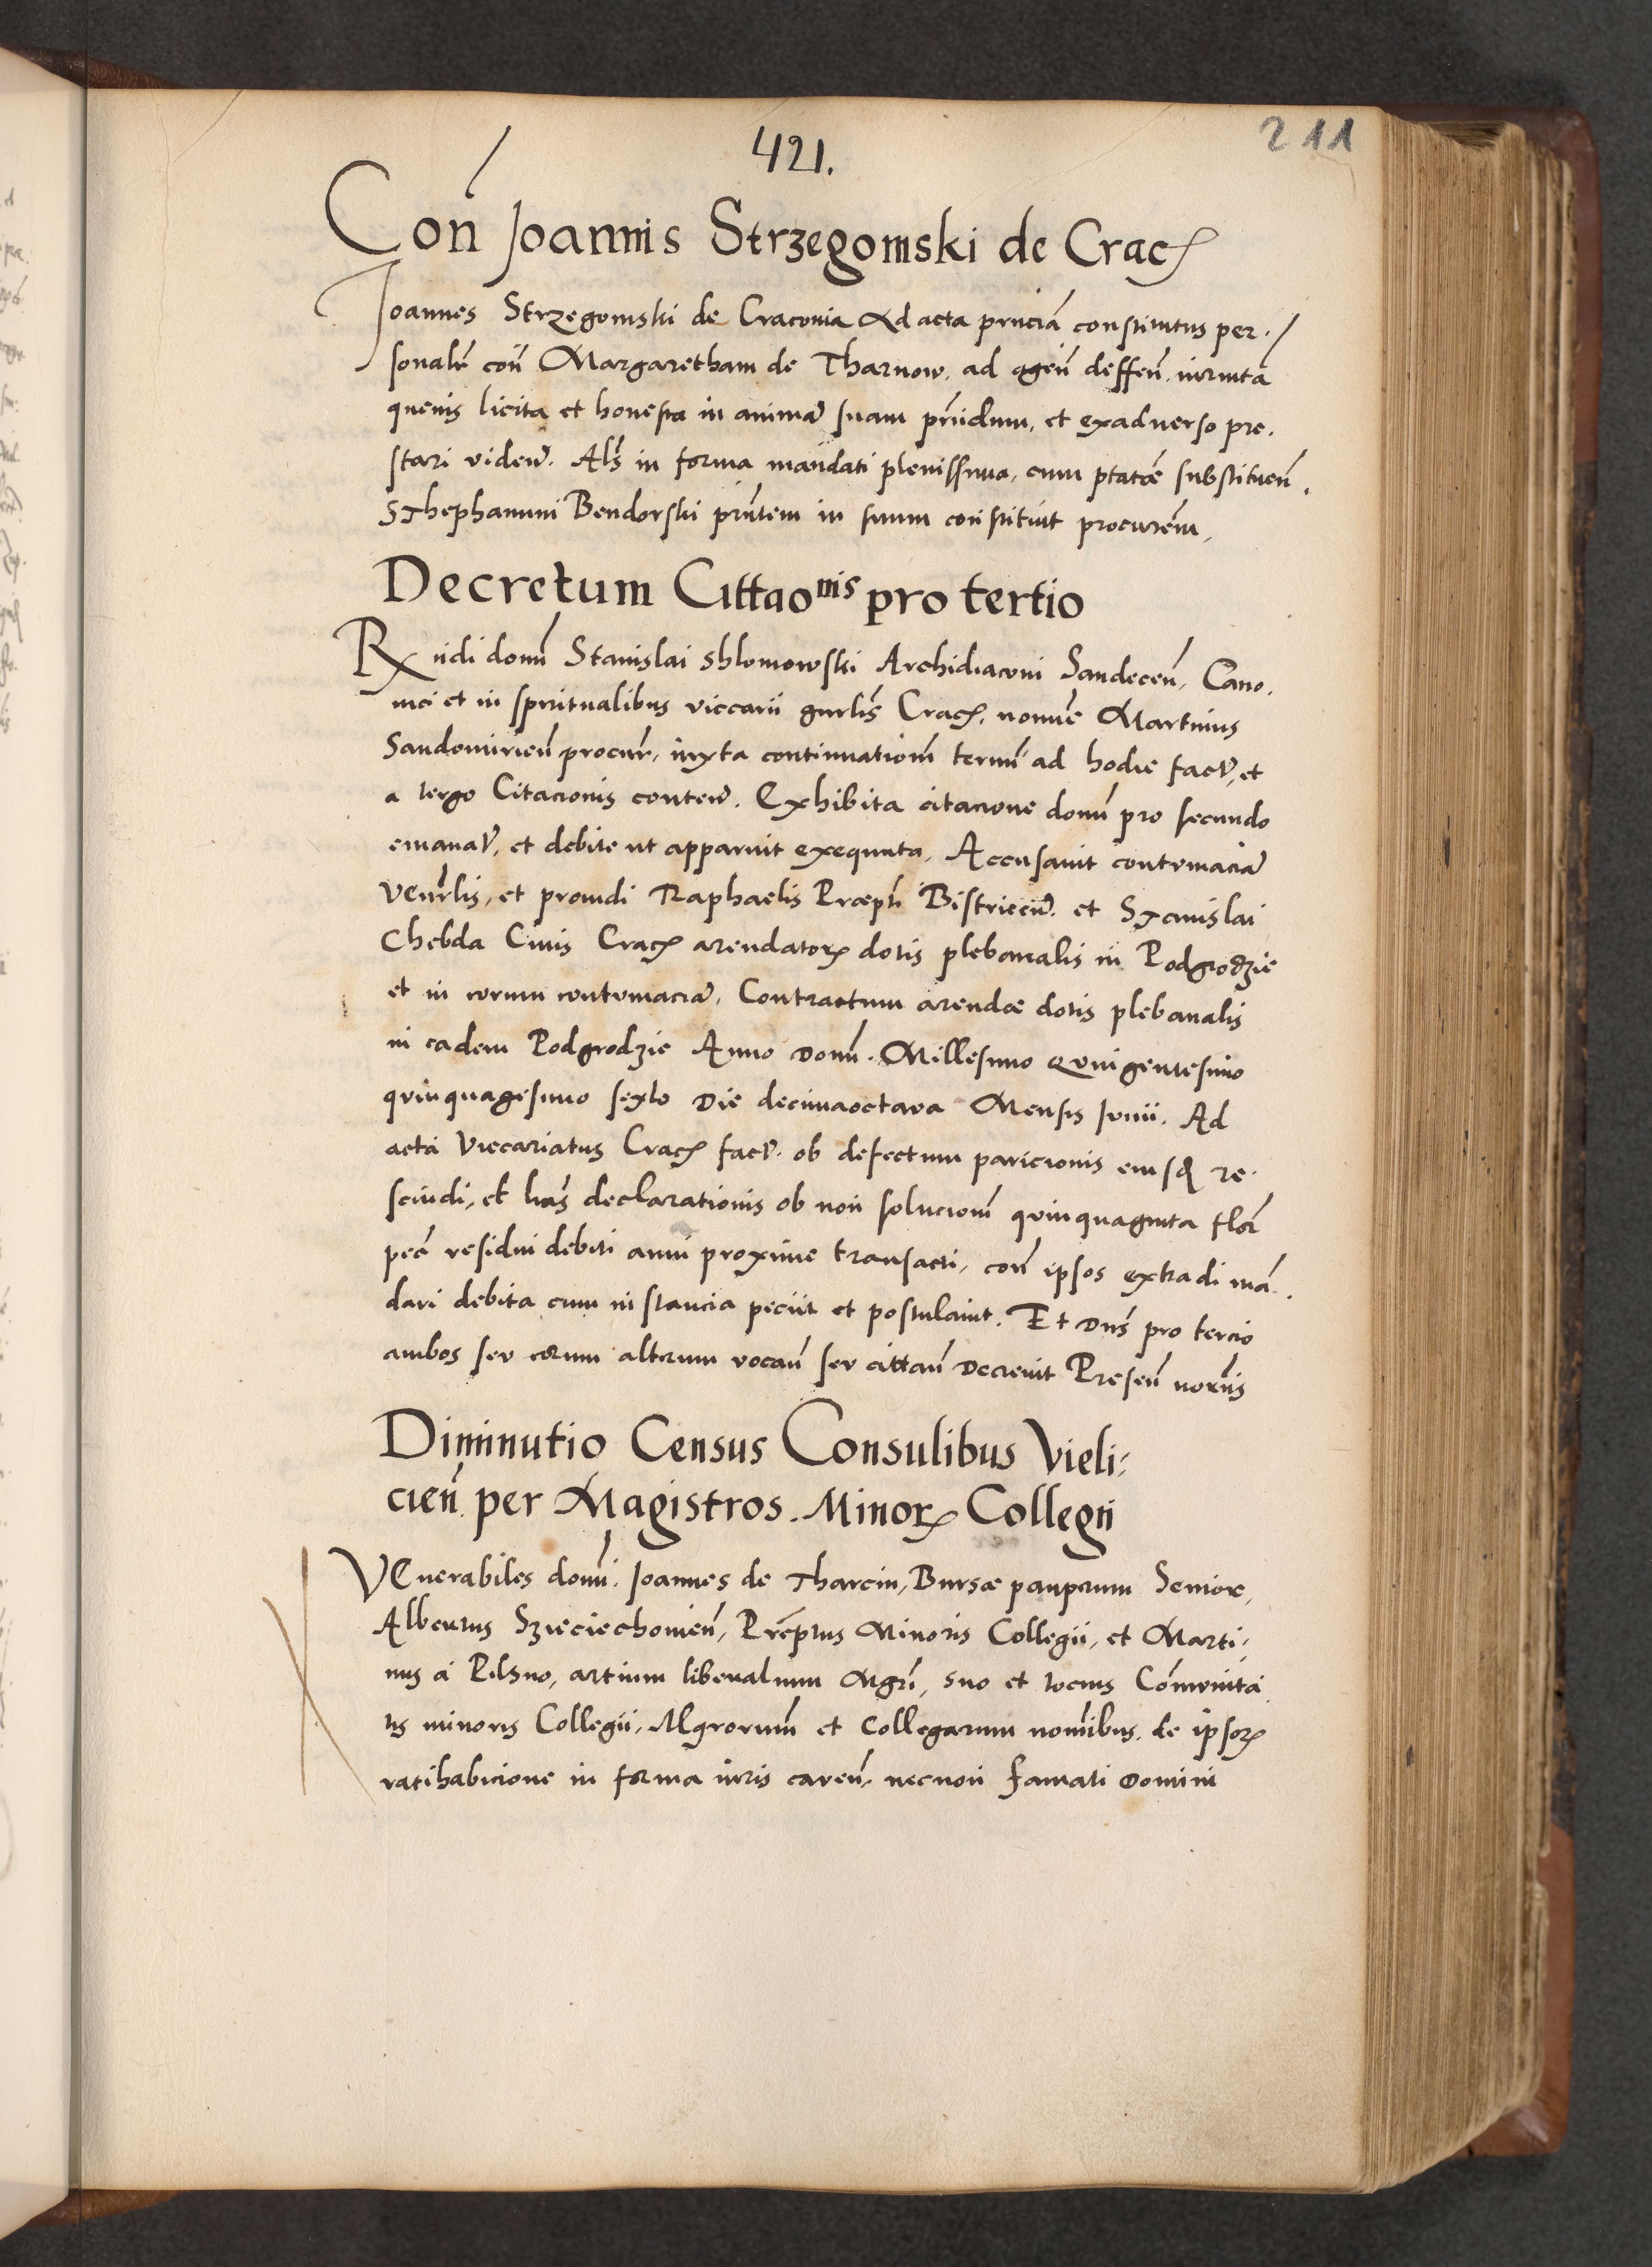 421.
211
Con̄ Joannis Strzegomski de Crac̄
Joannes Strzegomski de Craconia Ad acta prnciā constitutus per.
sonalr̄ con̄ Margaretham de Tharnow. ad agen̄ deffen̄. iuramta
quevis licita et honesta in animā suam prn̄dum, et exadverso pre.
stari viden̄. Als̄ in forma mandati plenissima, cum ptatæ substituen̄.
Sthephanum Bendorski prn̄tem in suum constituit procurem̄,
Decretum Cittaonis pro tertio
Rndi domn̄ Stanislai Shlomowski Archidiaconi Sandecen̄, Cano.
nici et in spiritualibus viccarii gnrlis̄ Crac̄. nomine Martinus
Sandomirien̄ procur̄. iuxta continuationem̄ termn̄ ad hodie fact̄, et
a tergo Citacionis conten̄. Exhibita citacione domn̄ pro secundo
emanat̄, et debite ut apparuit exequuta, Accusavit contumaciā
Venrlis, et providi Raphaelis Præpti Bistricien̄. et Stanislai
Chebda Civis Crac̄ arendator̄ dotis plebanalis in Podgrodzie
et in eorum contumaciā, Contractum arendæ dotis plebanalis
in eadem Podgrodzie Anno Domn̄. Millesimo Quingentesimo
quinquagesimo sexto Die decimaoctava Mensis Junii. Ad
acta Viccariatus Crac̄ fact̄. ob defectum paricionis eiusd̄ re.
scindi, et lras̄ declarationis ob non solucionem̄ quinquaginta flor̄
pec̄ residui debiti anni proxime transacti, con̄ ipsos extradi mā.
dari debita cum instancia peciit et postulavit. Et Dns̄ pro tercio
ambos seu eorum alterum vocan̄ seu cittan̄ Decrevit Presen̄ notr̄iis
Diminutio Census Consulibus Vieli:
cien̄ per Magistros Minor̄ Collegii
VEnerabiles domn̄i. Joannes de Tharcin, Bursæ pauperum Senior,
Albertus Szieciechovien̄, Præptus Minoris Collegii, et Marti:
nus à Pilsno, artium liberalium Mgr̄i, suo et tocius Comūnitā
tis minoris Collegii, Mgrorum̄ et Collegarum nomībus, de ipsor̄
ratihabicione in forma iuris caven̄, necnon famati Domini